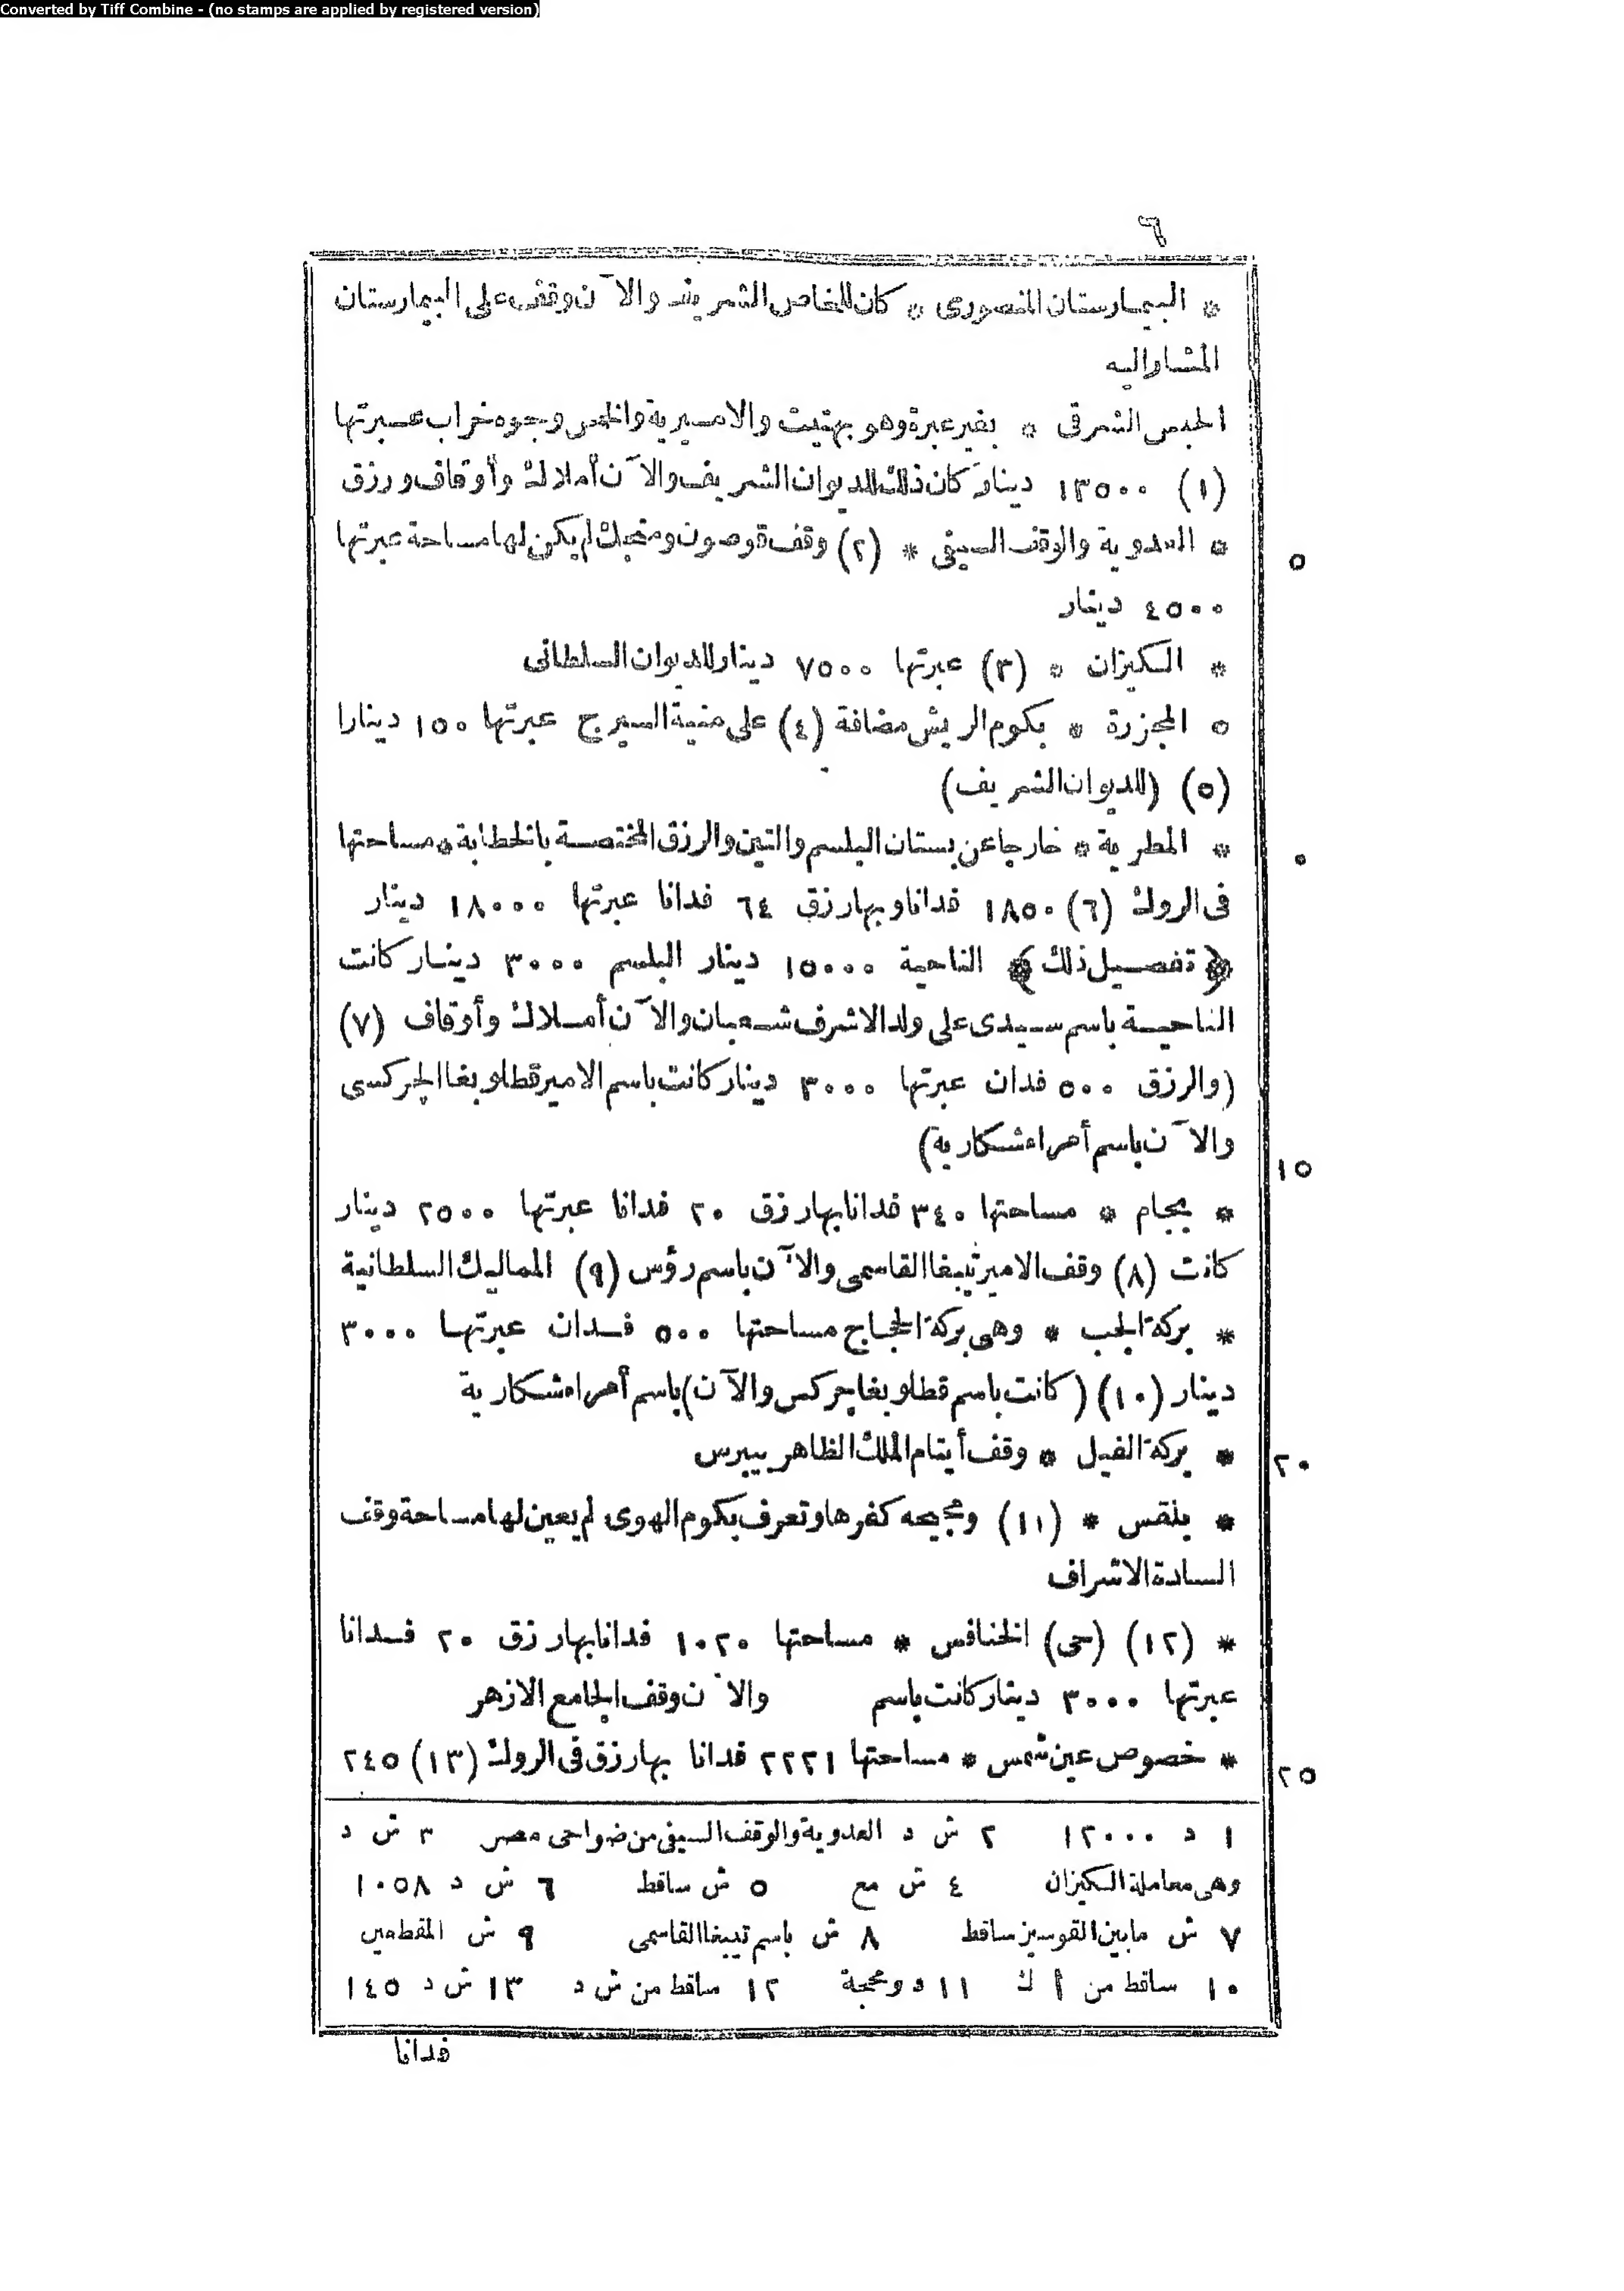 Converted by Tiff Combine - (no stamps are applied by registered version)
٦
* البيمارستان المنصورى * كان للخاص الشريف والآن وقف على البيمارستان
المشار اليه
الحبس الشرقى * بغير عبرة وهو بهتيت والاميرية والخمس وجوه خراب عبرتها
(١) ١٣٥٠٠ دينار كان ذلك للديوان الشريف والآن أملاك وأوقاف ورزق
* العدوية والوقف السيفى * (٢) وقف قوصون ومنجك لم يكن لها مساحة عبرتها
٥
٤٥٠٠ دينار
* الكيزان * (٣) عبرتها ٧٥٠٠ دينار للديوان السلطانى
* المجزرة * بكوم الريش مضافة (٤) على منية السيرج عبرتها ١٥٠ دينارا
(٥) (للديوان الشريف)
* المطرية * خارجا عن بستان البلسم والتين والرزق المختصة بالخطابة * مساحتها
٠
فى الروك (٦) ١٨٥٠ فدانا وبها رزق ٦٤ فدانا عبرتها ١٨٠٠٠ دينار
﴿تفصيل ذلك﴾ الناحية ١٥٠٠٠ دينار البلسم ٣٠٠٠ دينار كانت
الناحية باسم سيدى على ولد الاشرف شعبان والآن أملاك وأوقاف (٧)
(والرزق ٥٠٠ فدان عبرتها ٣٠٠٠ دينار كانت باسم الامير قطلوبغا الجركسى
والآن باسم أمراء شكارية)
١٥
* بجام * مساحتها ٣٤٠ فدانا بها رزق ٢٠ فدانا عبرتها ٢٥٠٠ دينار
كانت (٨) وقف الامير تيبغا القاسمى والآن باسم رؤس (٩) المماليك السلطانية
* بركة الجب * وهى بركة الحجاج مساحتها ٥٠٠ فدان عبرتها ٣٠٠٠
دينار (١٠) (كانت باسم قطلوبغا جركس والآن) باسم أمراء شكارية
* بركة الفيل * وقف أيتام الملك الظاهر بيبرس
٢٠
* بلقس * (١١) ومجيحه كفرها وتعرف بكوم الهوى لم يعين لها مساحة وقف
السادة الاشراف
* (١٢) (حى) الخنافس * مساحتها ١٠٢٠ فدانا بها رزق ٢٠ فدانا
عبرتها ٣٠٠٠ دينار كانت باسم والآن وقف الجامع الازهر
* خصوص عين شمس * مساحتها ٢٢٢١ فدانا بها رزق فى الروك (١٣) ٢٤٥
٢٥
١ د ١٢٠٠٠ ٢ ش د العدوية والوقف السيفى من ضواحى مصر ٣ ش د
وهى معاملة الكيزان ٤ ش مع ٥ ش ساقط ٦ ش د ١٠٥٨
٧ ش مابين القوسين ساقط ٨ ش باسم تيبغا القاسمى ٩ ش المقطعين
١٠ ساقط من أ ك ١١ د ومججة ١٢ ساقط من ش د ١٣ ش د ١٤٥
فدانا